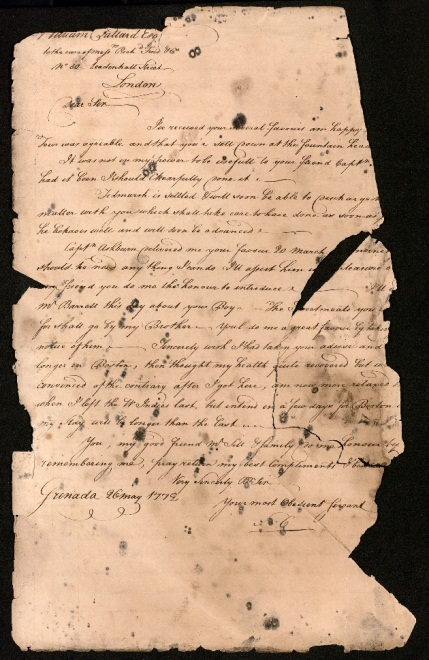 William Lillard Esq
to the care of Mess
No 60 Leadenhall Street
London
Dear Sir
I've received your several favours am happy
was agreable and that you sat down at the fountain head
It was not in my power to be usefull to your friend Capt
had it been I should chearfully done it
is settled I will soon be able to
matter with you which shall take care to have done as soon as
he behaves well and will soon be advanced
Capt Ashburn delivered me your favour 20 March
should he need any thing I can do I'll assist him
friend you do me the honour to introduce I'll
Mr Barrett this day about your Boy The Sweetmeats you
for shall go by my Brother you'l do me a great favour by
notice of him Sincerely wish I had taken your advice and
longer in Boston, then thought my health quite recovered but
convinced of the contrary after I got here, am now more relaxed
when I left the W Indies last, but intend in a few days for Boston
my stay will be longer than the last
You, my good friend Mr Hill & family do me honour by
remembering me, pray return my best compliments
Very Sincerely Dr Sir
Grenada 26 May 1772
Your most Obedient Servant